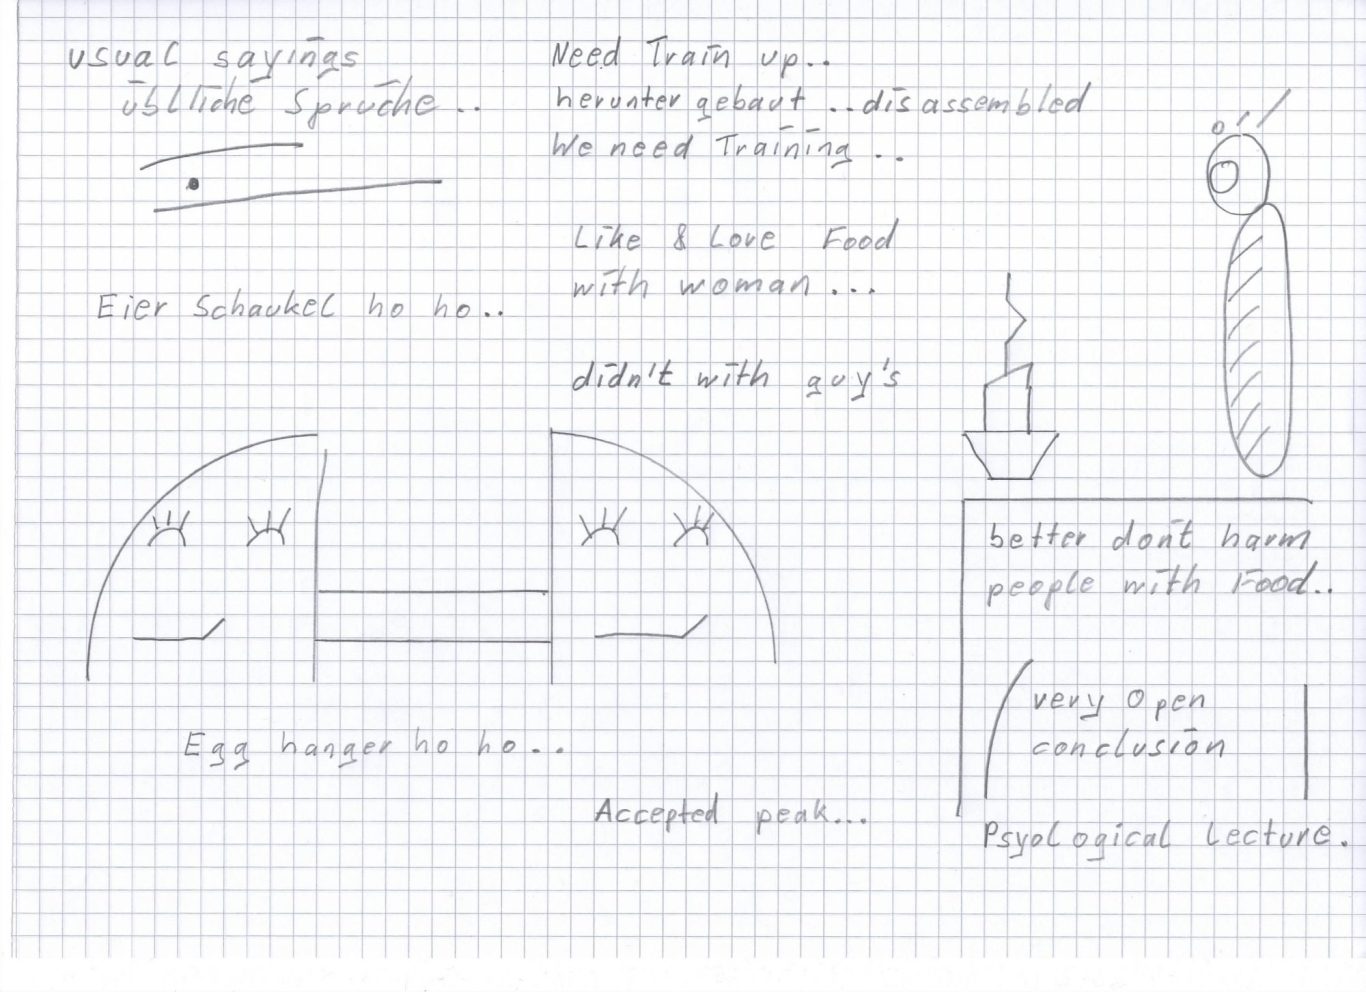 usual sayings
übliche Sprüche..
Eier Schaukel ho ho..
Need Train up..
herunter gebaut ..disassembled
We need Training ..
Like & Love Food
with woman...
didn't with guy's
better don't harm
people with Food..
very open
conclusion
Psyological Lecture.
Egg hanger ho ho...
Accepted peak...